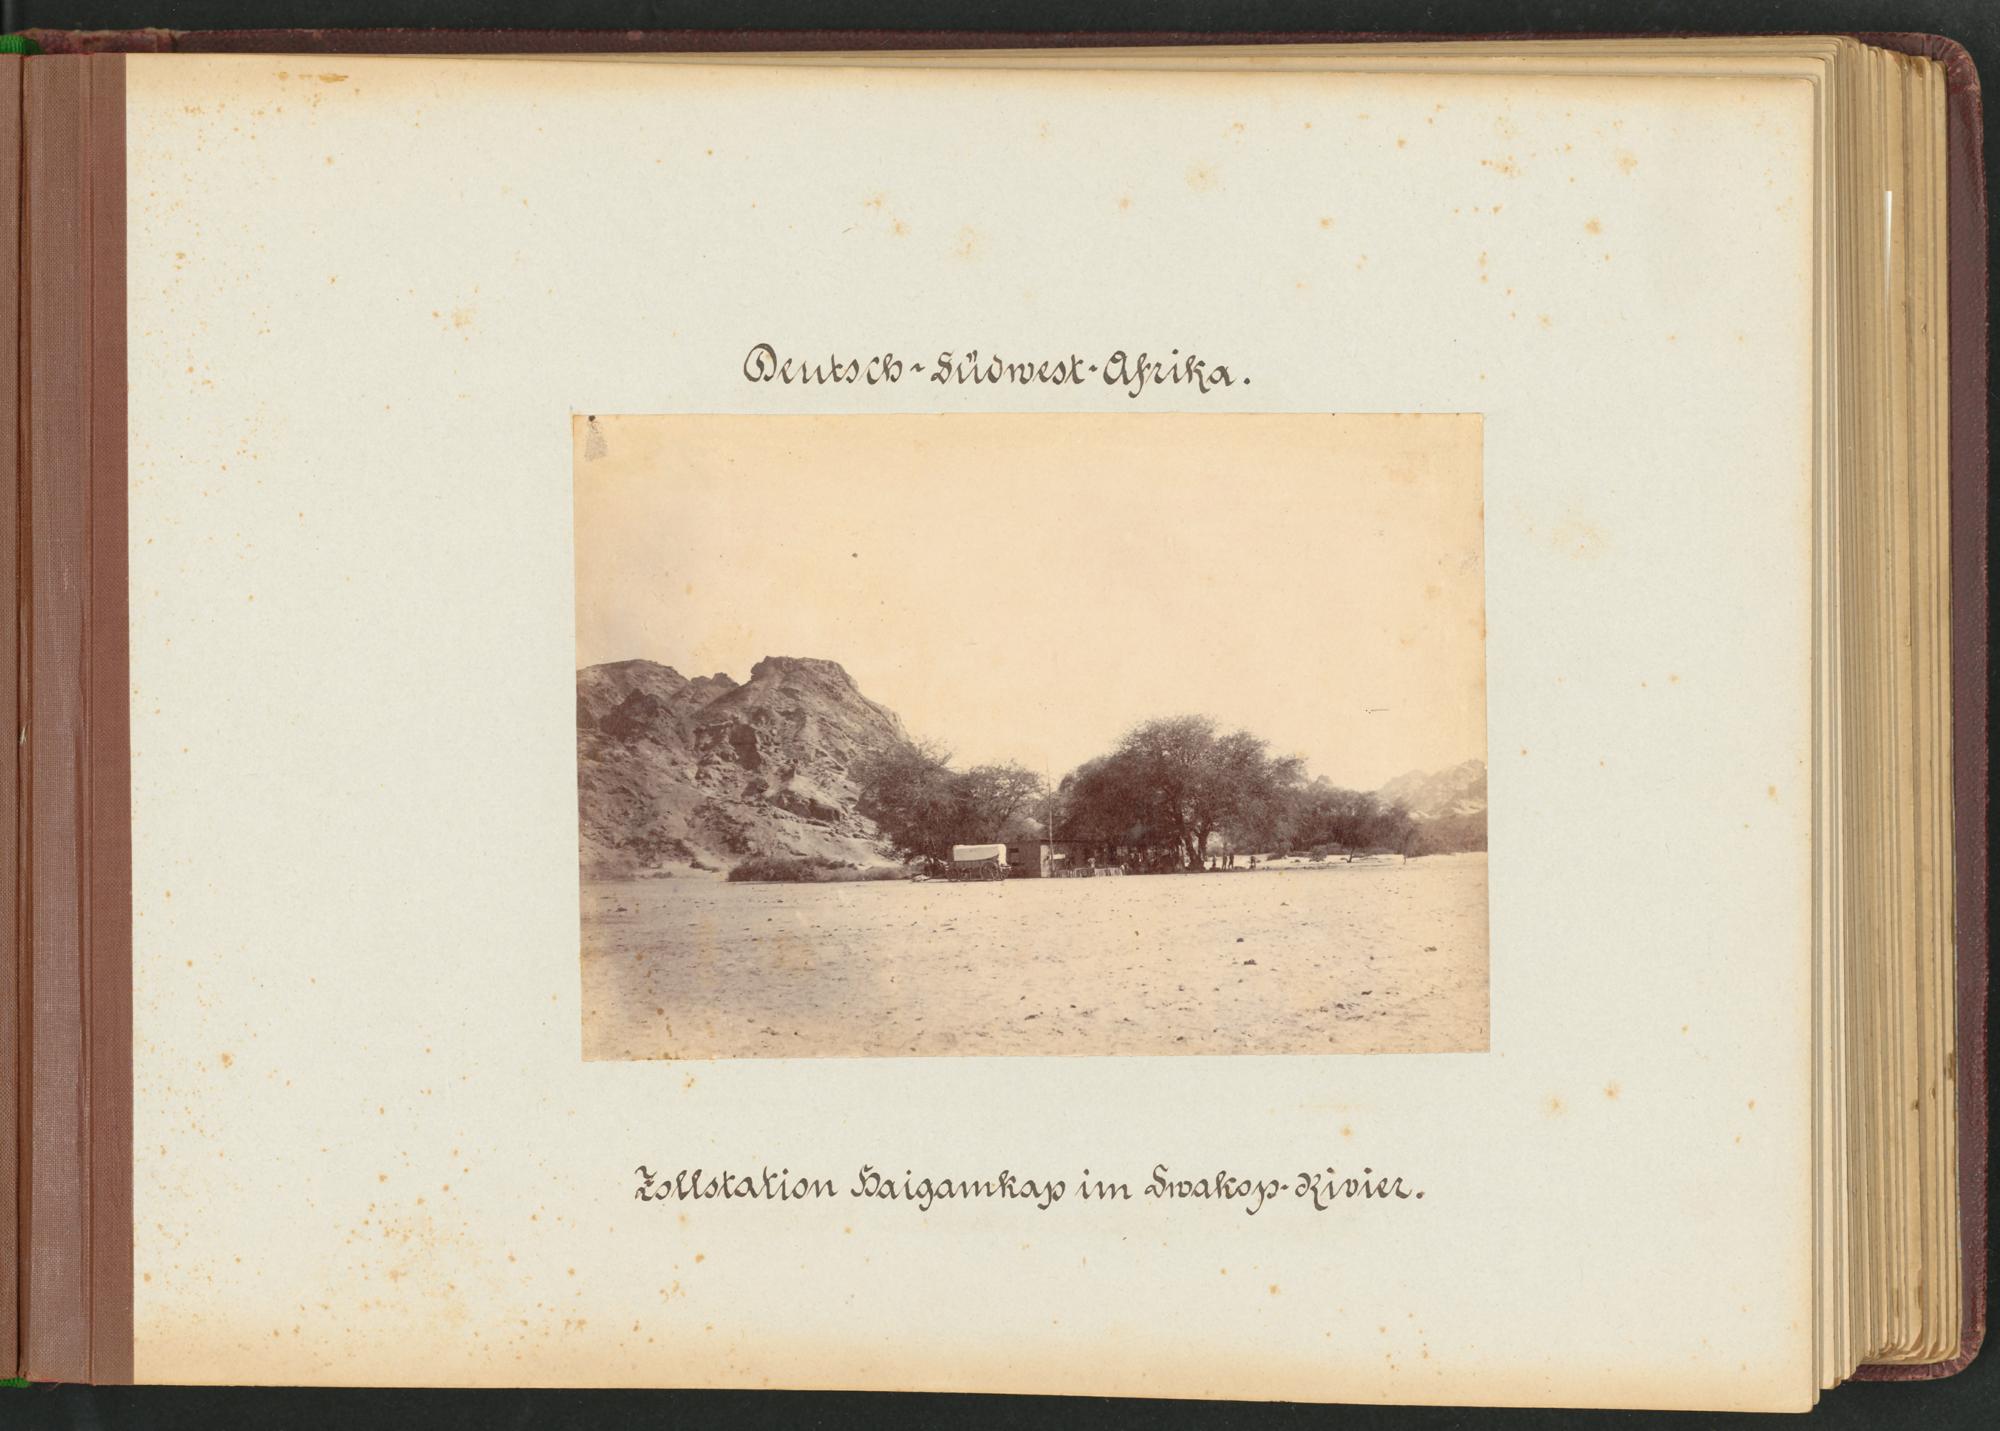 Deutsch-Südwest-Afrika.
Zollstation Haigamkap im Swakop-Rivier.